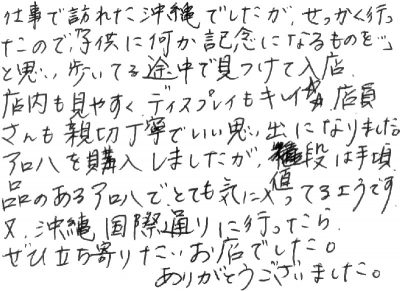 仕事で訪れた沖縄でしたが、せっかく行っ
たので、「子供に何か記念になるものを…」
と思い、歩いてる途中で見つけて入店。
店内も見やすくディスプレイもキレイ、店員
さんも親切丁寧でいい思い出になりました。
アロハを購入しましたが、値段は手頃
品のあるアロハで、とても気に入ってるようです。
又、沖縄国際通りに行ったら、
ぜひ立ち寄りたいお店でした。
ありがとうございました。